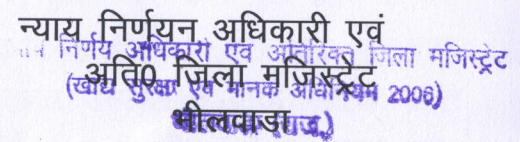 न्याय निर्णयन अधिकारी एवं
निर्णय अधिकारी एवं अतिरिक्त जिला मजिस्ट्रेट
अति0 जिला मजिस्ट्रेट
(खाद्य सुरक्षा एवं मानक अधिनियम 2006)
भीलवाडा